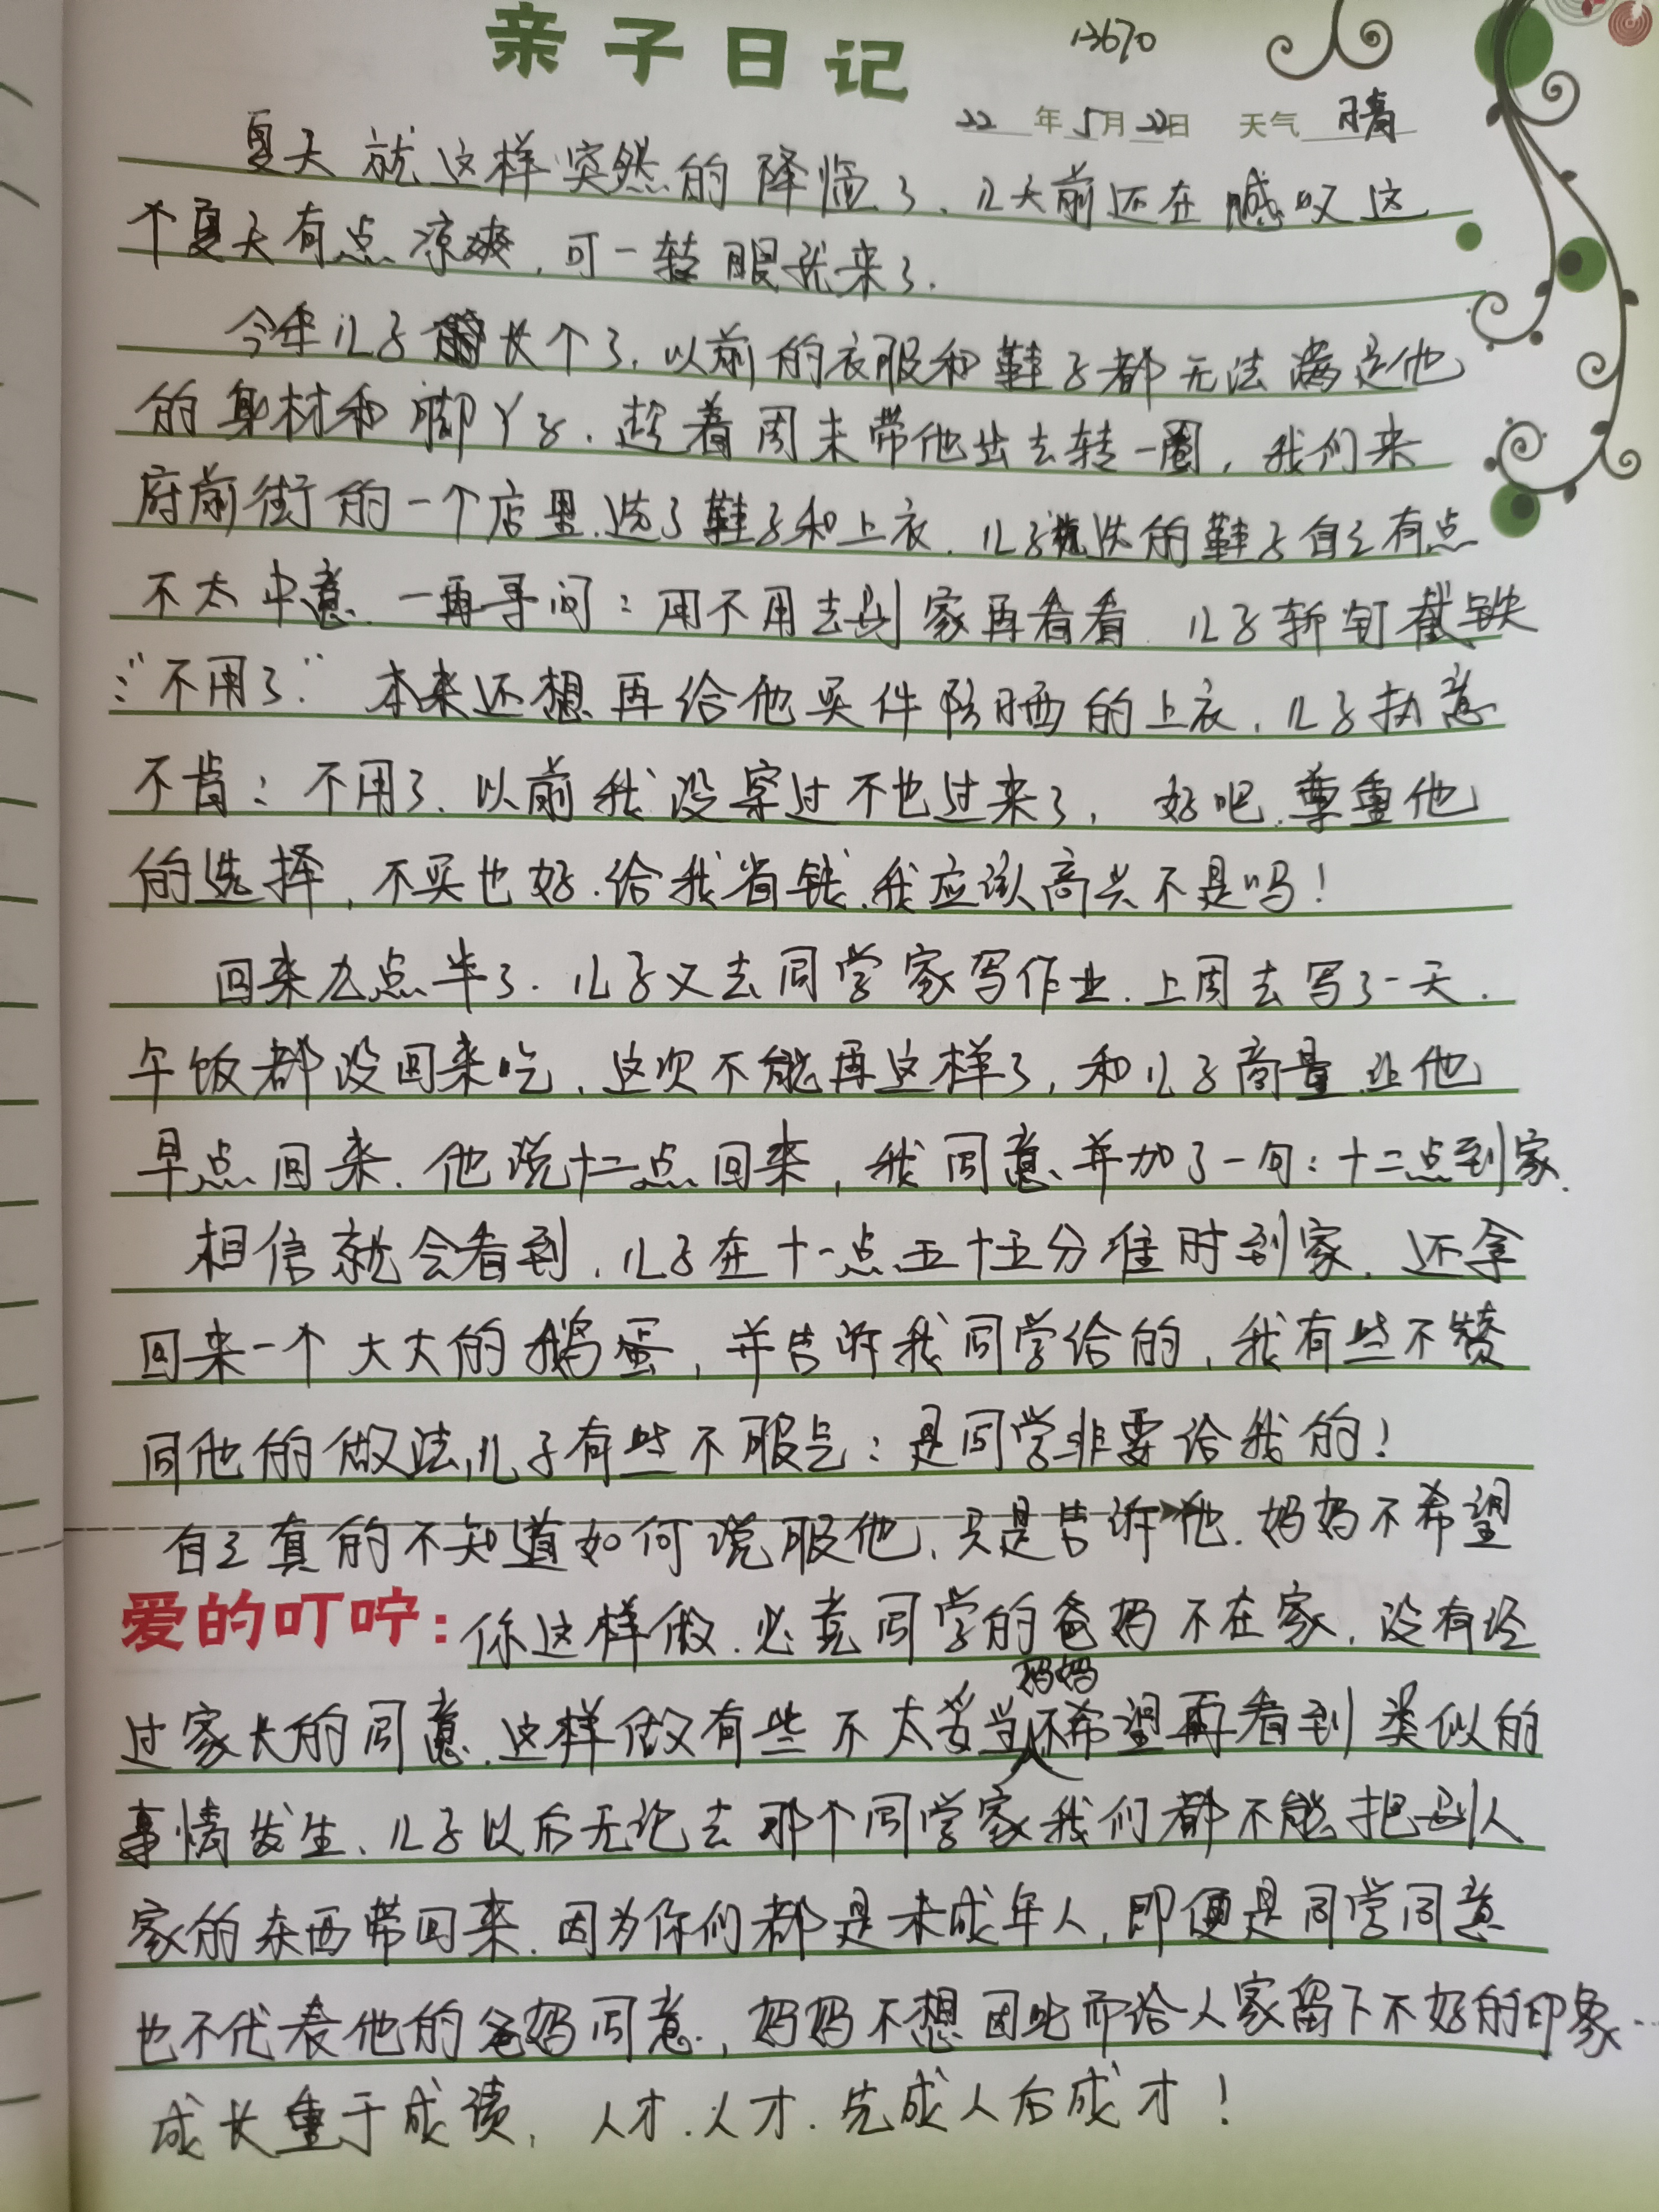 亲子日记
13670
22年5月22日 天气 晴
夏天就这样突然的降临了，几天前还在感叹这
个夏天有点凉爽，可一转眼就来了。
今年儿子长个了，以前的衣服和鞋子都无法满足他
的身材和脚丫子，趁着周末带他出去转一圈，我们来
府前街的一个店里，选了鞋子和上衣，儿子挑选的鞋子自己有点
不太中意，一再寻问：用不用去别家再看看，儿子斩钉截铁
："不用了." 本来还想再给他买件防晒的上衣，儿子执意
不肯：不用了，以前我没穿过不也过来了， 好吧，尊重他
的选择，不买也好，给我省钱，我应该高兴不是吗！
回来九点半了，儿子又去同学家写作业，上周去写了一天，
午饭都没回来吃，这次不能再这样了，和儿子商量，让他
早点回来，他说十二点回来，我同意，并加了一句：十二点到家.
相信就会看到，儿子在十一点五十五分准时到家，还拿
回来一个大大的鹅蛋，并告诉我同学给的，我有些不赞
同他的做法，儿子有些不服气：是同学非要给我的！
自己真的不知道如何说服他，只是告诉他，妈妈不希望
爱的叮咛：你这样做，必竟同学的爸妈不在家，没有经
妈妈
过家长的同意，这样做有些不太妥当，不希望再看到类似的
事情发生，儿子以后无论去那个同学家我们都不能把别人
家的东西带回来，因为你们都是未成年人，即便是同学同意
也不代表他的爸妈同意，妈妈不想因此而给人家留下不好的印象…
成长重于成绩，人才，人才，先成人后成才！